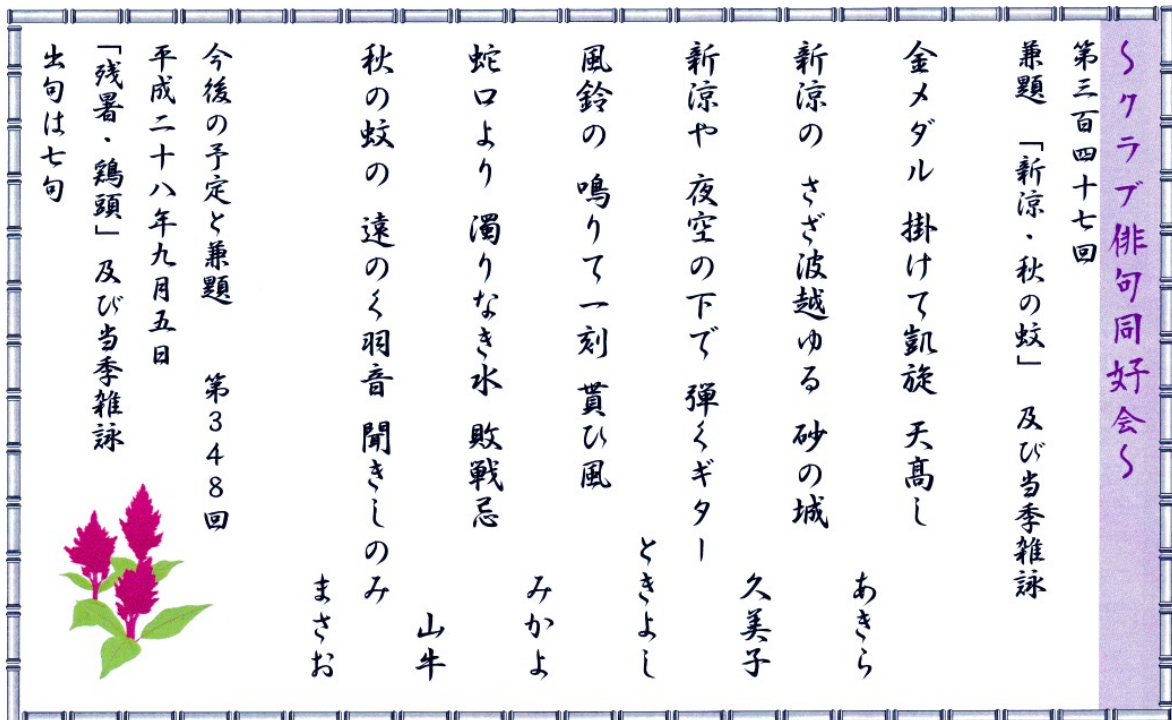 ～クラブ俳句同好会～
第三百四十七回
兼題 「新涼・秋の蚊」 及び当季雑詠
金メダル 掛けて凱旋 天高し
あきら
新涼の さざ波越ゆる 砂の城
久美子
新涼や 夜空の下で 弾くギター
ときよし
風鈴の 鳴りて一刻 貰ひ風
みかよ
蛇口より 濁りなき水 敗戦忌
山牛
秋の蚊の 遠のく羽音 聞きしのみ
まさお
今後の予定と兼題 第348回
平成二十八年九月五日
「残暑・鶏頭」及び当季雑詠
出句は七句